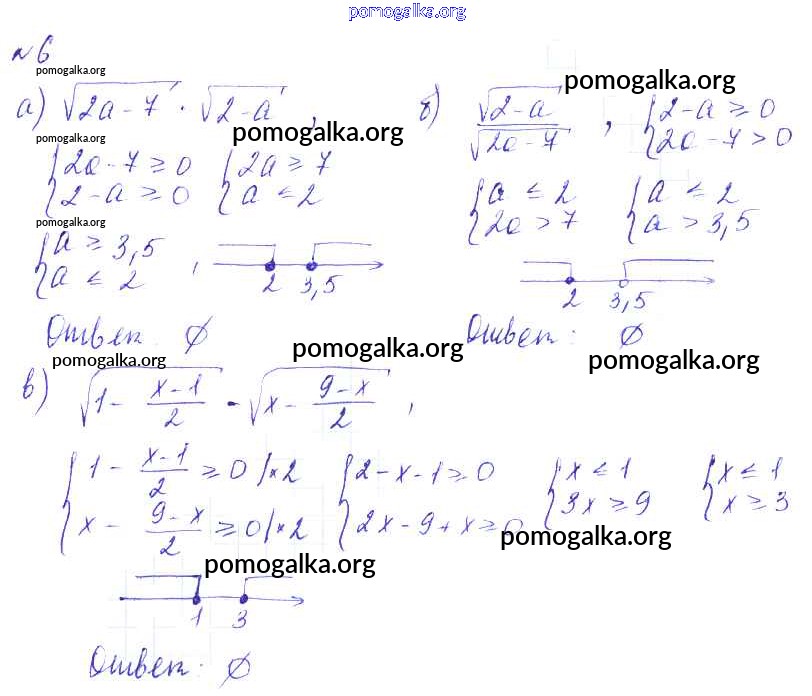 pomogalka.org
№6
pomogalka.org
а) √(2a-7) · √(2-a) ,
pomogalka.org
pomogalka.org
{2a-7≥0 {2a≥7
{2-a≥0 {a≤2
pomogalka.org
{a≥3,5
{a≤2 ,
2 3,5
Ответ: ∅
б) √(2-a)/√(2a-7) , {2-a≥0
{2a-7>0
pomogalka.org
{a≤2 {a≤2
{2a>7 {a>3,5
2 3,5
Ответ: ∅
pomogalka.org
pomogalka.org
pomogalka.org
в) √(1-(x-1)/2) - √(x-(9-x)/2) ,
{1-(x-1)/2≥0 |×2 {2-x-1≥0 {x≤1 {x≤1
{x-(9-x)/2≥0 |×2 {2x-9+x≥0 {3x≥9 {x≥3
pomogalka.org
pomogalka.org
1 3
Ответ: ∅